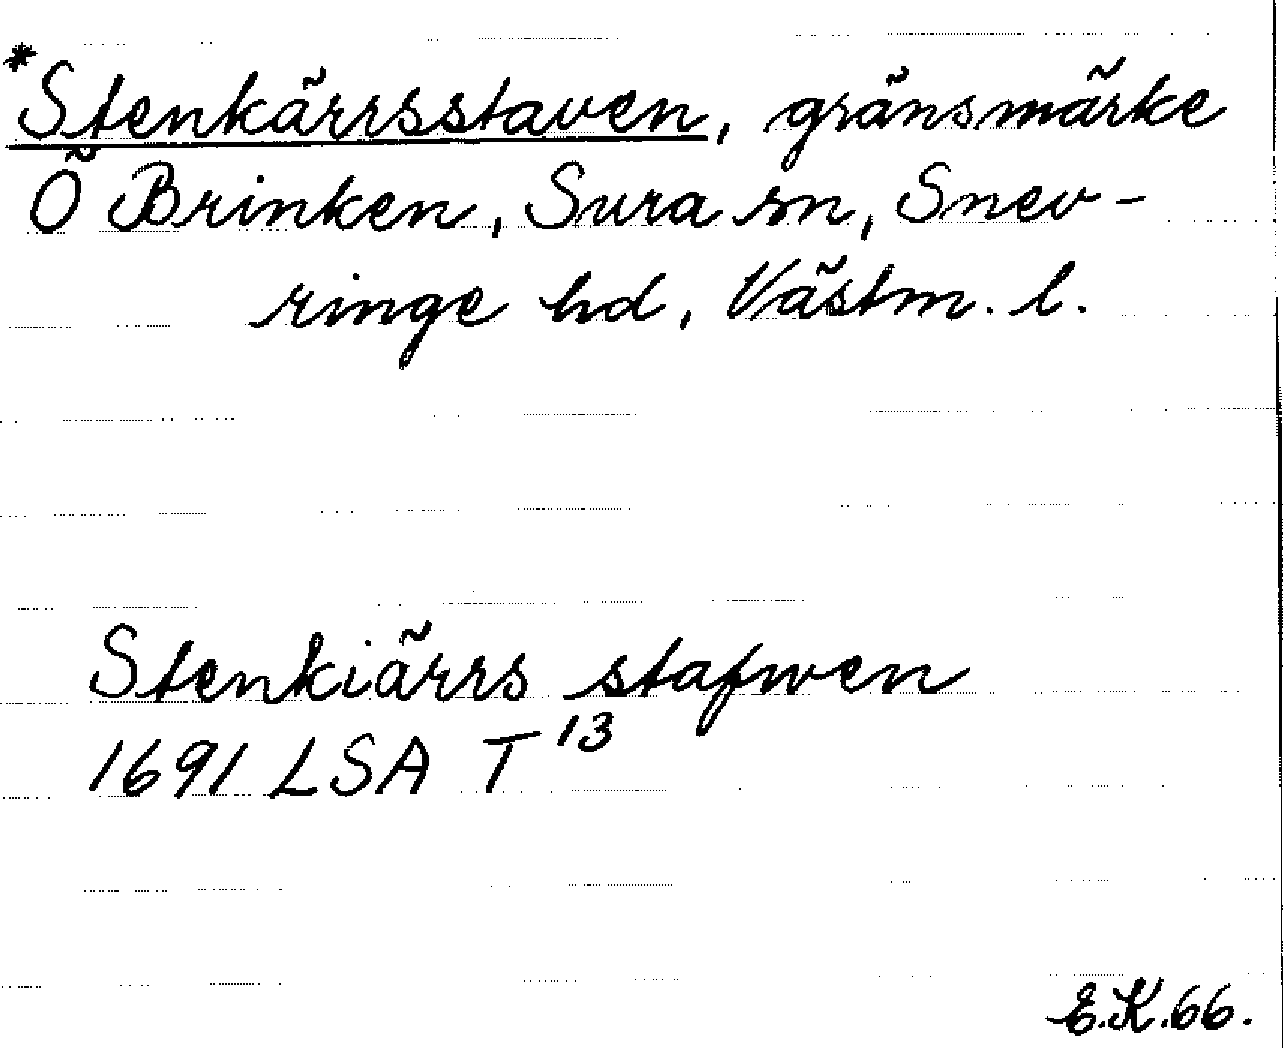 *Stenkärrsstaven, gränsmärke
Ö Brinken, Sura sn, Snev-
ringe hd, Västm. l.
Stenkiärrs stafwen
1691 LSA T 13
E.K.66.